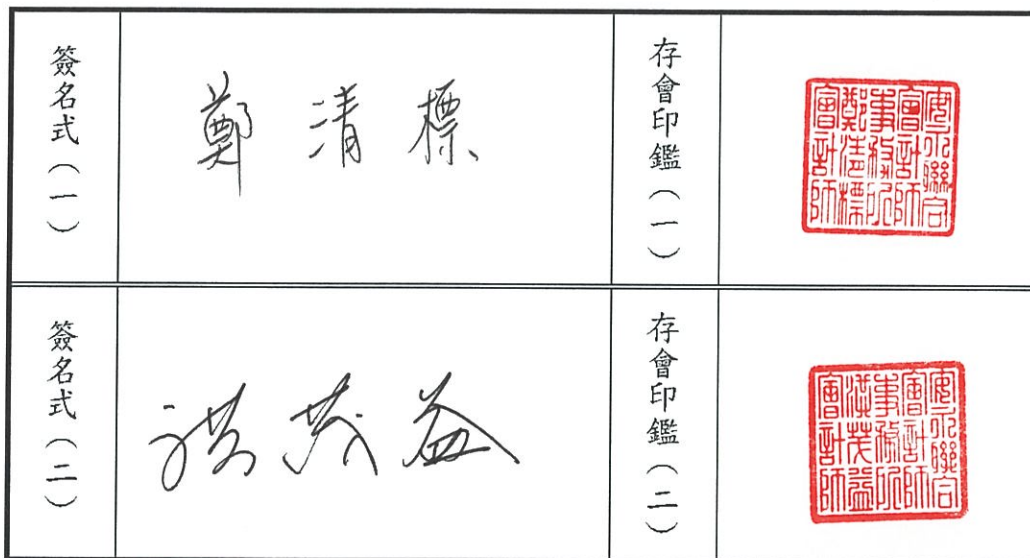 簽名式（一）
鄭清標
存會印鑑（一）
安永聯合
會計師
事務所
鄭清標
會計師
簽名式（二）
洪茂益
存會印鑑（二）
安永聯合
會計師
事務所
洪茂益
會計師